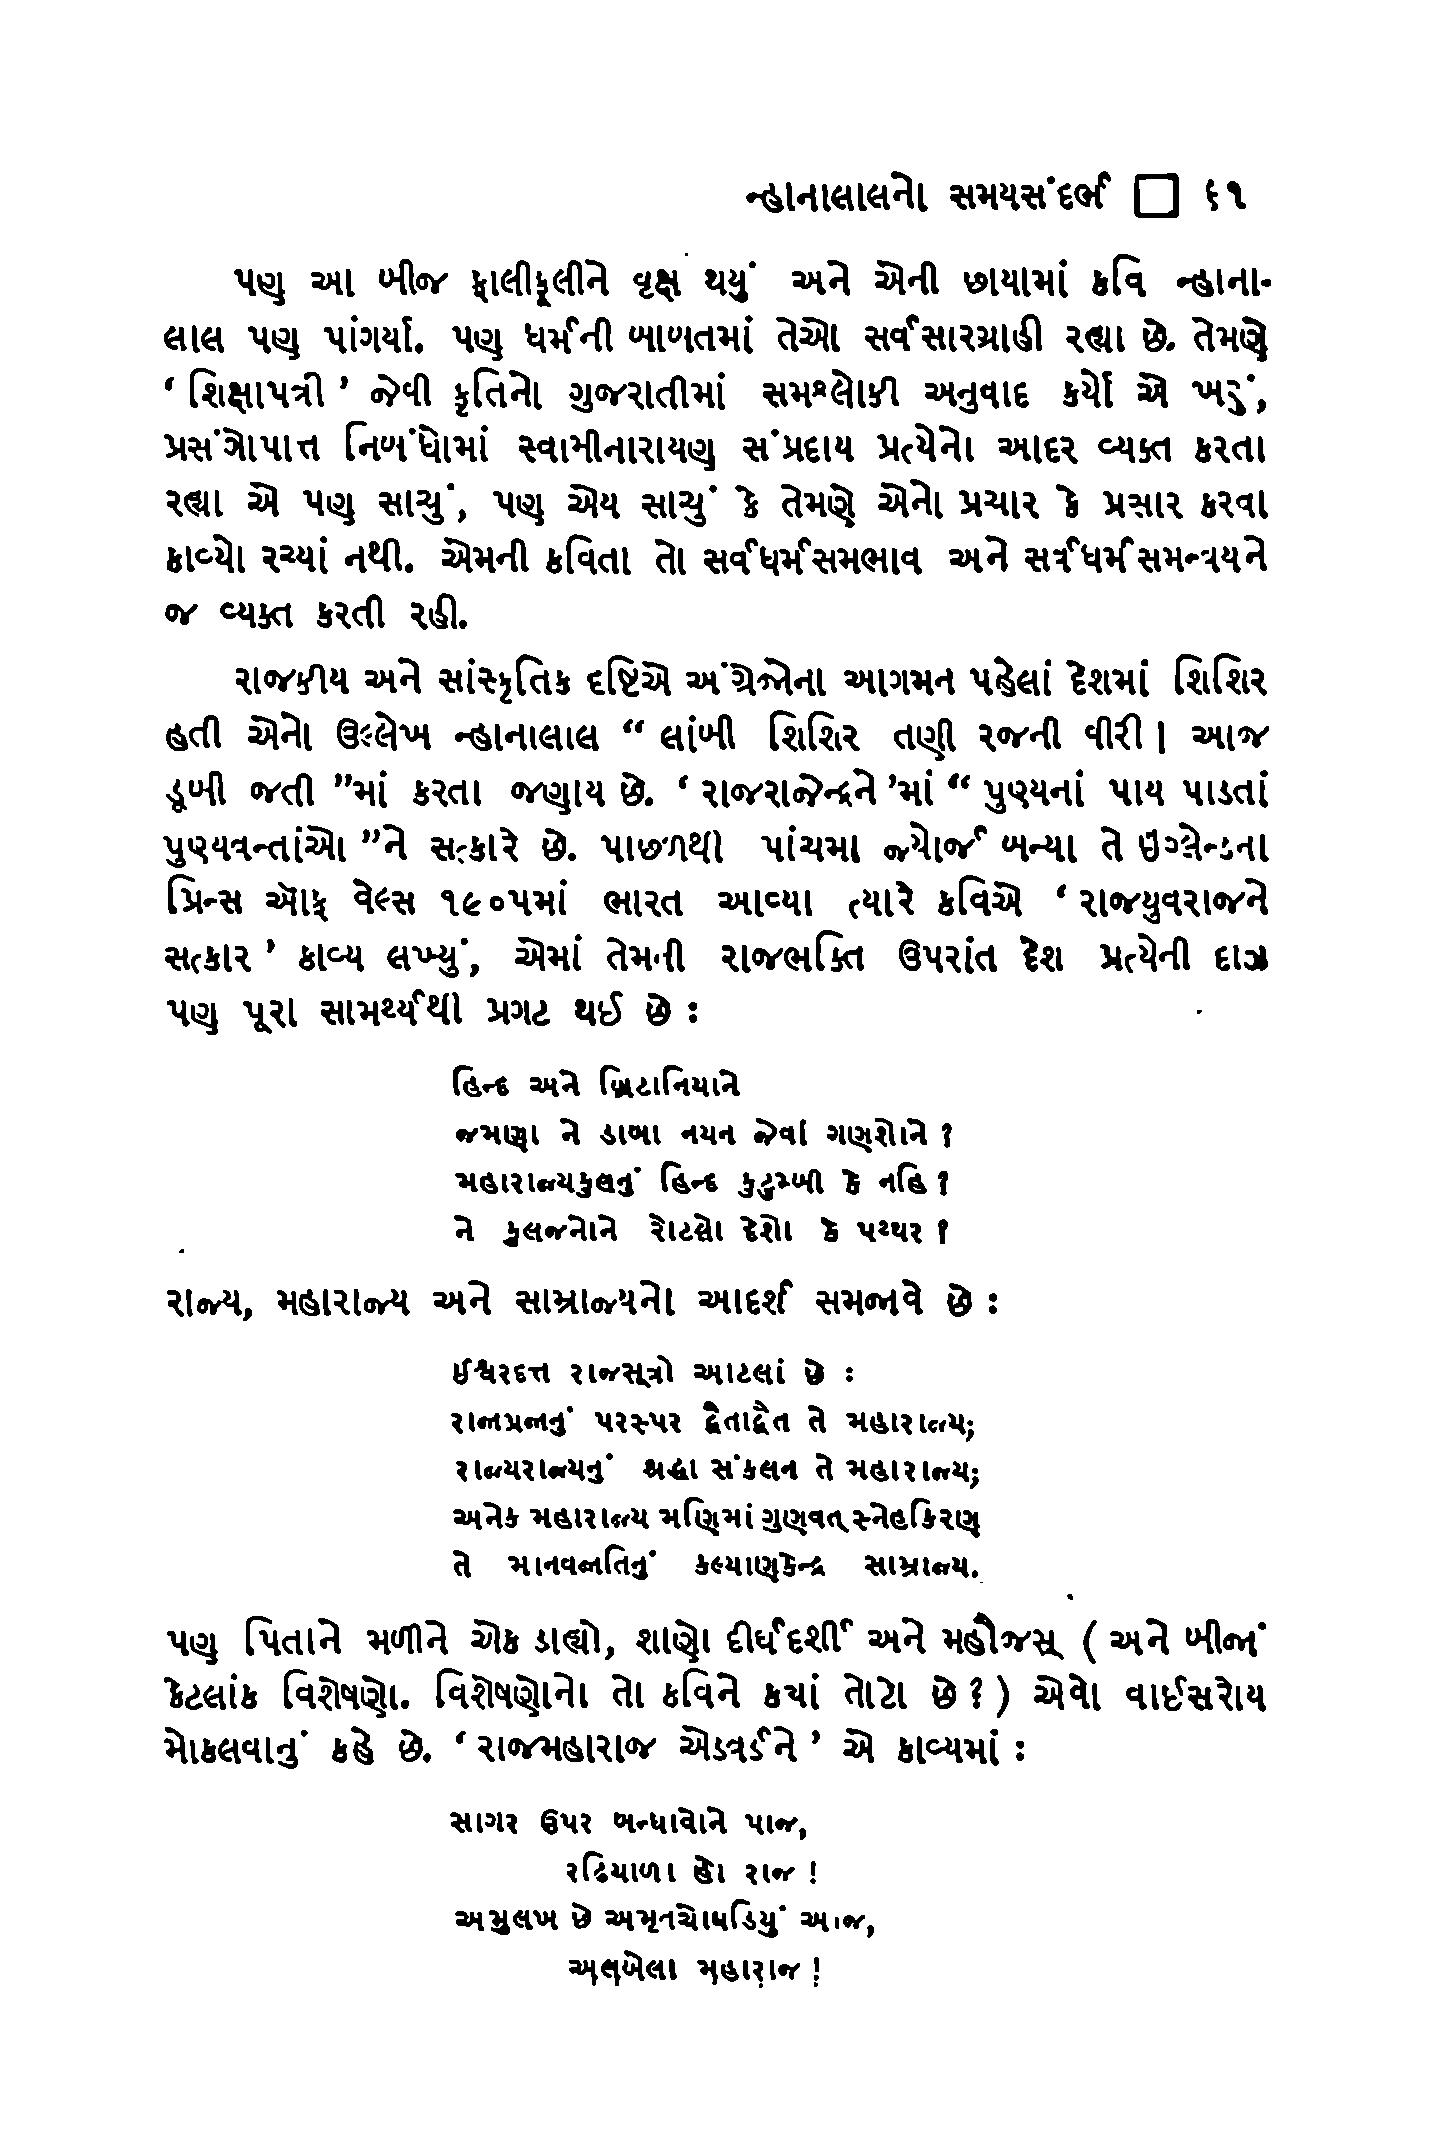 ન્હાનાલાલનો સમયસંદર્ભ □ ૬૧
પણ આ બીજ ફાલીફૂલીને વૃક્ષ થયું અને એની છાયામાં કવિ ન્હાના-
લાલ પણ પાંગર્યા. પણ ધર્મની બાબતમાં તેઓ સર્વસારગ્રાહી રહ્યા છે. તેમણે
‘ શિક્ષાપત્રી ’ જેવી કૃતિનો ગુજરાતીમાં સમશ્લોકી અનુવાદ કર્યો એ ખરું,
પ્રસંગોપાત્ત નિબંધોમાં સ્વામીનારાયણ સંપ્રદાય પ્રત્યેનો આદર વ્યક્ત કરતા
રહ્યા એ પણ સાચું, પણ એય સાચું કે તેમણે એનો પ્રચાર કે પ્રસાર કરવા
કાવ્યો રચ્યાં નથી. એમની કવિતા તો સર્વધર્મસમભાવ અને સર્વધર્મસમન્વયને
જ વ્યક્ત કરતી રહી.
રાજકીય અને સાંસ્કૃતિક દૃષ્ટિએ અંગ્રેજોના આગમન પહેલાં દેશમાં શિશિર
હતી એનો ઉલ્લેખ ન્હાનાલાલ “ લાંબી શિશિર તણી રજની વીરી। આજ
ડૂબી જતી ”માં કરતા જણાય છે. ‘ રાજરાજેન્દ્રને ’માં “ પુણ્યનાં પાય પાડતાં
પુણ્યવન્તાંઓ ”ને સત્કારે છે. પાછળથી પાંચમા જ્યોર્જ બન્યા તે ઇંગ્લેન્ડના
પ્રિન્સ ઑફ વેલ્સ ૧૯૦૫માં ભારત આવ્યા ત્યારે કવિએ ‘ રાજયુવરાજને
સત્કાર ’ કાવ્ય લખ્યું, એમાં તેમની રાજભક્તિ ઉપરાંત દેશ પ્રત્યેની દાઝ
પણ પૂરા સામર્થ્યથી પ્રગટ થઈ છે :
હિન્દ અને બ્રિટાનિયાને
જમણા ને ડાબા નયન જેવાં ગણશોને ?
મહારાજ્યકુલનું હિન્દ કુટુમ્બી કે નહિ ?
ને કુલજનોને રોટલો દેશો કે પથ્થર ?
રાજ્ય, મહારાજ્ય અને સામ્રાજ્યનો આદર્શ સમજાવે છે :
ઈશ્વરદત્ત રાજસૂત્રો આટલાં છે :
રાજાપ્રજાનું પરસ્પર દ્વૈતાદ્વૈત તે મહારાજ્ય;
રાજ્યરાજ્યનું શ્રદ્ધા સંકલન તે મહારાજ્ય;
અનેક મહારાજ્ય મણિમાં ગુણવત્ સ્નેહકિરણ
તે માનવજાતિનું કલ્યાણકેન્દ્ર સામ્રાજ્ય.
પણ પિતાને મળીને એક ડાહ્યો, શાણો દીર્ઘદર્શી અને મહૌજસ્ ( અને બીજાં
કેટલાંક વિશેષણો. વિશેષણોનો તો કવિને ક્યાં તોટો છે ? ) એવો વાઈસરોય
મોકલવાનું કહે છે. ‘ રાજમહારાજ એડવર્ડને ’ એ કાવ્યમાં :
સાગર ઉપર બન્ધાવોને પાજ,
રઢિયાળા હો રાજ !
અમુલખ છે અમૃતચોઘડિયું આજ,
અલબેલા મહારાજ !